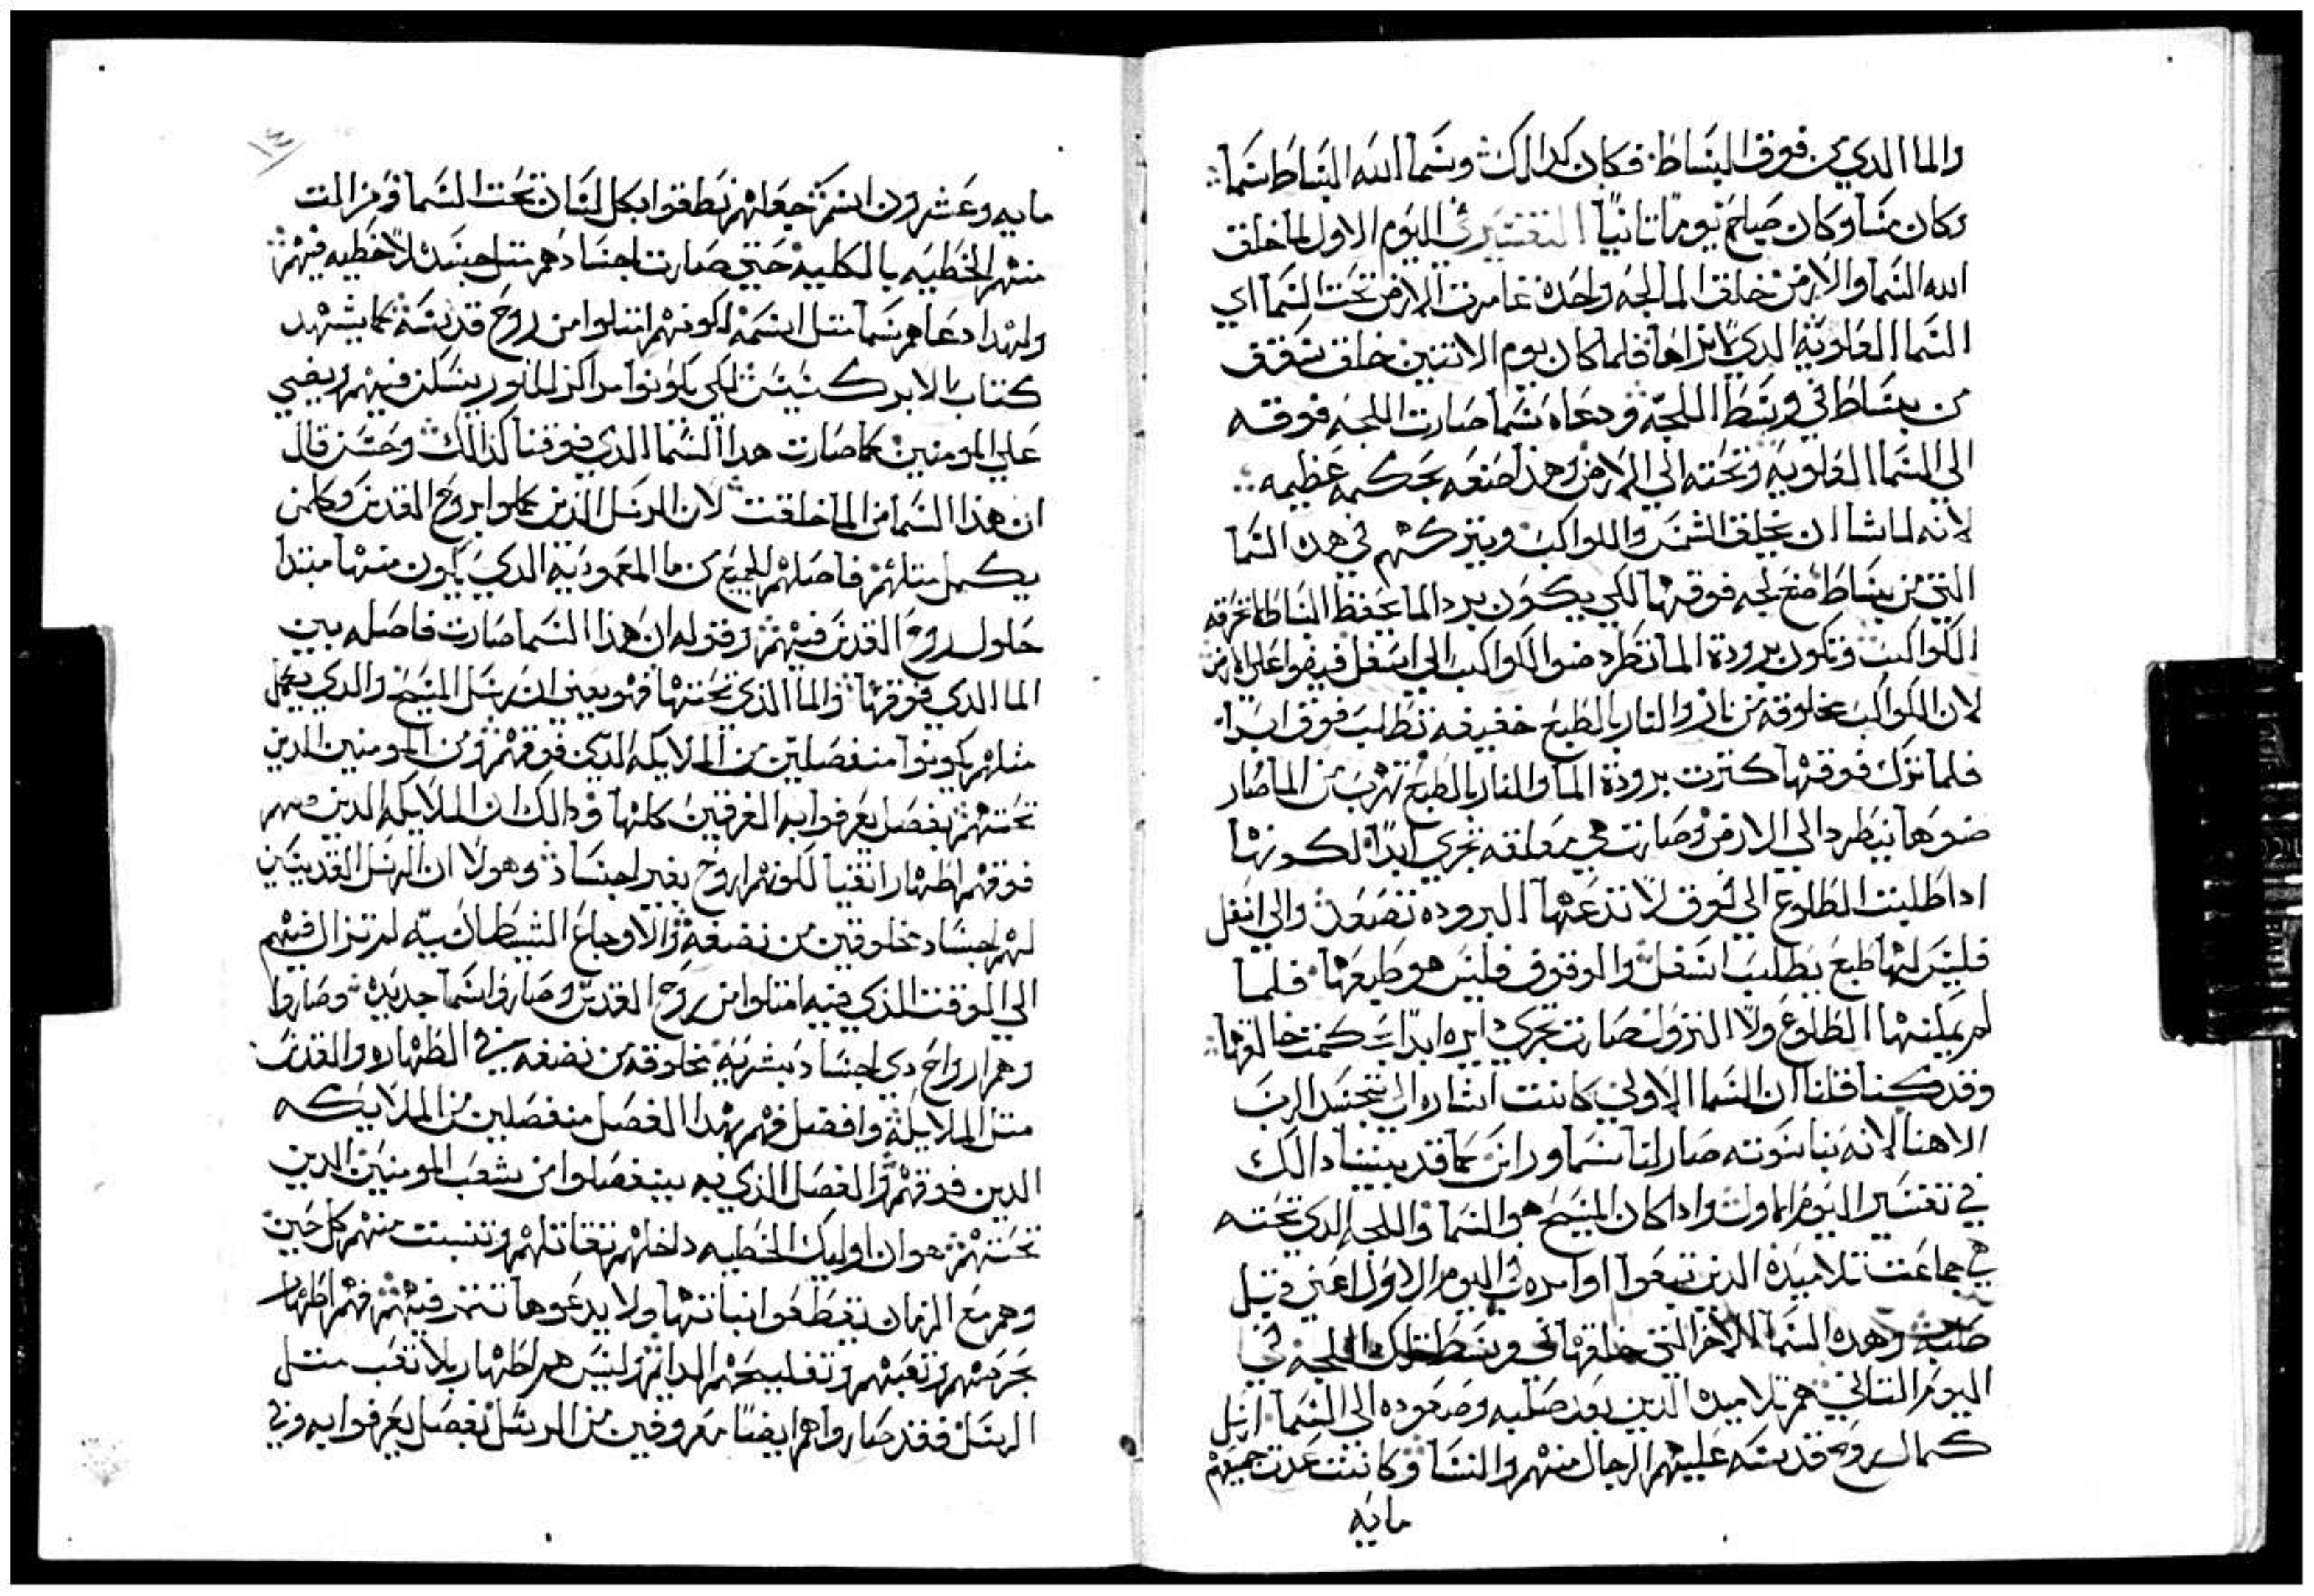 والما الدي من فوق البساط فكان كدالك وسما الله البساط سما
وكان مسا وكان صباح يوما تانيا التفسير في اليوم الاول لما خلق
الله السما والارض خلق الما لجه واحده غامرت الارض تحت السما اي
السما العلويه الدي لا نراها فلما كان يوم الاتنين خلق سقف
من بساط في وسط اللجه ودعاه سما صارت اللجه فوقه
الي السما العلويه وتحته الي الارض وهذا صنعه بحكمه عظيمه
لانه لما شا ان يخلق الشمس والكواكب ويتركهم في هده السما
التي من بساط صنع لجه فوقها لكي يكون برد الما يحفظ البساط لا تحرقه
الكواكب وتكون برودة الما تطرد ضو الكواكب الي اسفل فيضوا علي الارض
لان الكواكب مخلوقه من نار والنار بالطبع خفيفه تطلب فوق ابدا
فلما ترك فوقها كترت برودة الما والنار بالطبع تهرب من الما صار
ضوها ينطرد الي الارض وصارت هي معلقه تجري ابدا لكونها
ادا طلبت الطلوع الي فوق لا تدعها البروده تصعد والي اسفل
فليس لها طبع يطلب اسفل والوقوف فليس هو طبعها فلما
لم يمكنها الطلوع ولا النزول صارت تجري دايره ابدا بحكمت خالقها
وقد كنا قلنا ان السما الاولي كانت اشاره الي تجسد الرب
الاهنا لانه بناسوته صار لنا سما وراس كما قد بينا دالك
في تفسير اليوم الاول وادا كان المسيح هو السما واللجه الدي تحته
هي جماعت تلاميده الدين تبعوا اوامره في اليوم الاول اعني قبل
صلبه وهده السما الاخر التي خلقها في وسط تلك اللجه في
اليوم التاني هم تلاميده الدين بعد صلبه وصعوده الي السما ارسل
كمال روح قدسه عليهم الرجال منهم والنسا وكانت عدت جميعهم
مايه
مايه وعشرون اسم جعلهم نطقوا بكل لسان تحت السما ومن المت
منهم الخطيه بالكليه حتي صارت اجسادهم متل جسده لا خطيه فيهم
ولهدا دعاهم سما متل اسمه لكونهم امتلوا من روح قدسه كما يشهد
كتاب الابركسيس لكي يكونوا مراكز للنور يسكن فيهم ويضي
علي المومنين كما صارت هدا السما الدي فوقنا كذالك وحسن قال
ان هذا السما من الما خلقت لان الرسل الذين كملوا بروح القدس وكلمن
يكمل متلهم فاصلهم للجميع من ما المعموديه الدي يكون منها مبتدا
حلول روح القدس فيهم وقوله ان هذا السما صارت فاصله بين
الما الدي فوقها والما الذي تحتها فهو يعني ان رسل المسيح والدي يعمل
مثلهم يكونوا منفصلين من الملايكه الدين فوقهم ومن المومنين الدين
تحتهم بفصل يعرفوا به الفرقين كلها ودالك ان الملايكه الدين
فوقهم اطهار انقيا لكونهم ارواح بغير اجساد وهولا ان الرسل القديسين
لهم اجساد مخلوقين من نضفه والاوجاع الشيطانيه لم تزال فيهم
الي الوقت الذي فيه امتلوا من روح القدس وصاروا سما جديده وصاروا
وهم ارواح دي اجساد بشريه مخلوقه من نضفه في الطهاره والقدس
متل الملايكه وافضل فهم بهدا الفصل منفصلين من الملايكه
الدين فوقهم والفصل الذي به ينفصلوا من شعب المومنين الدين
تحتهم هو ان اوليك الخطيه داخلهم تقاتلهم وتنبت منهم كل حين
وهم مع الزمان يقطعوا نباتها ولا يدعوها تتمر فيهم فهم اطهار
بحرصهم وتعبهم وتفليحهم الدايم وليس هم اطهار بلا تعب متل
الرسل فقد صاروا هم ايضا معروفين من الرسل بفصل يعرفوا به وفي